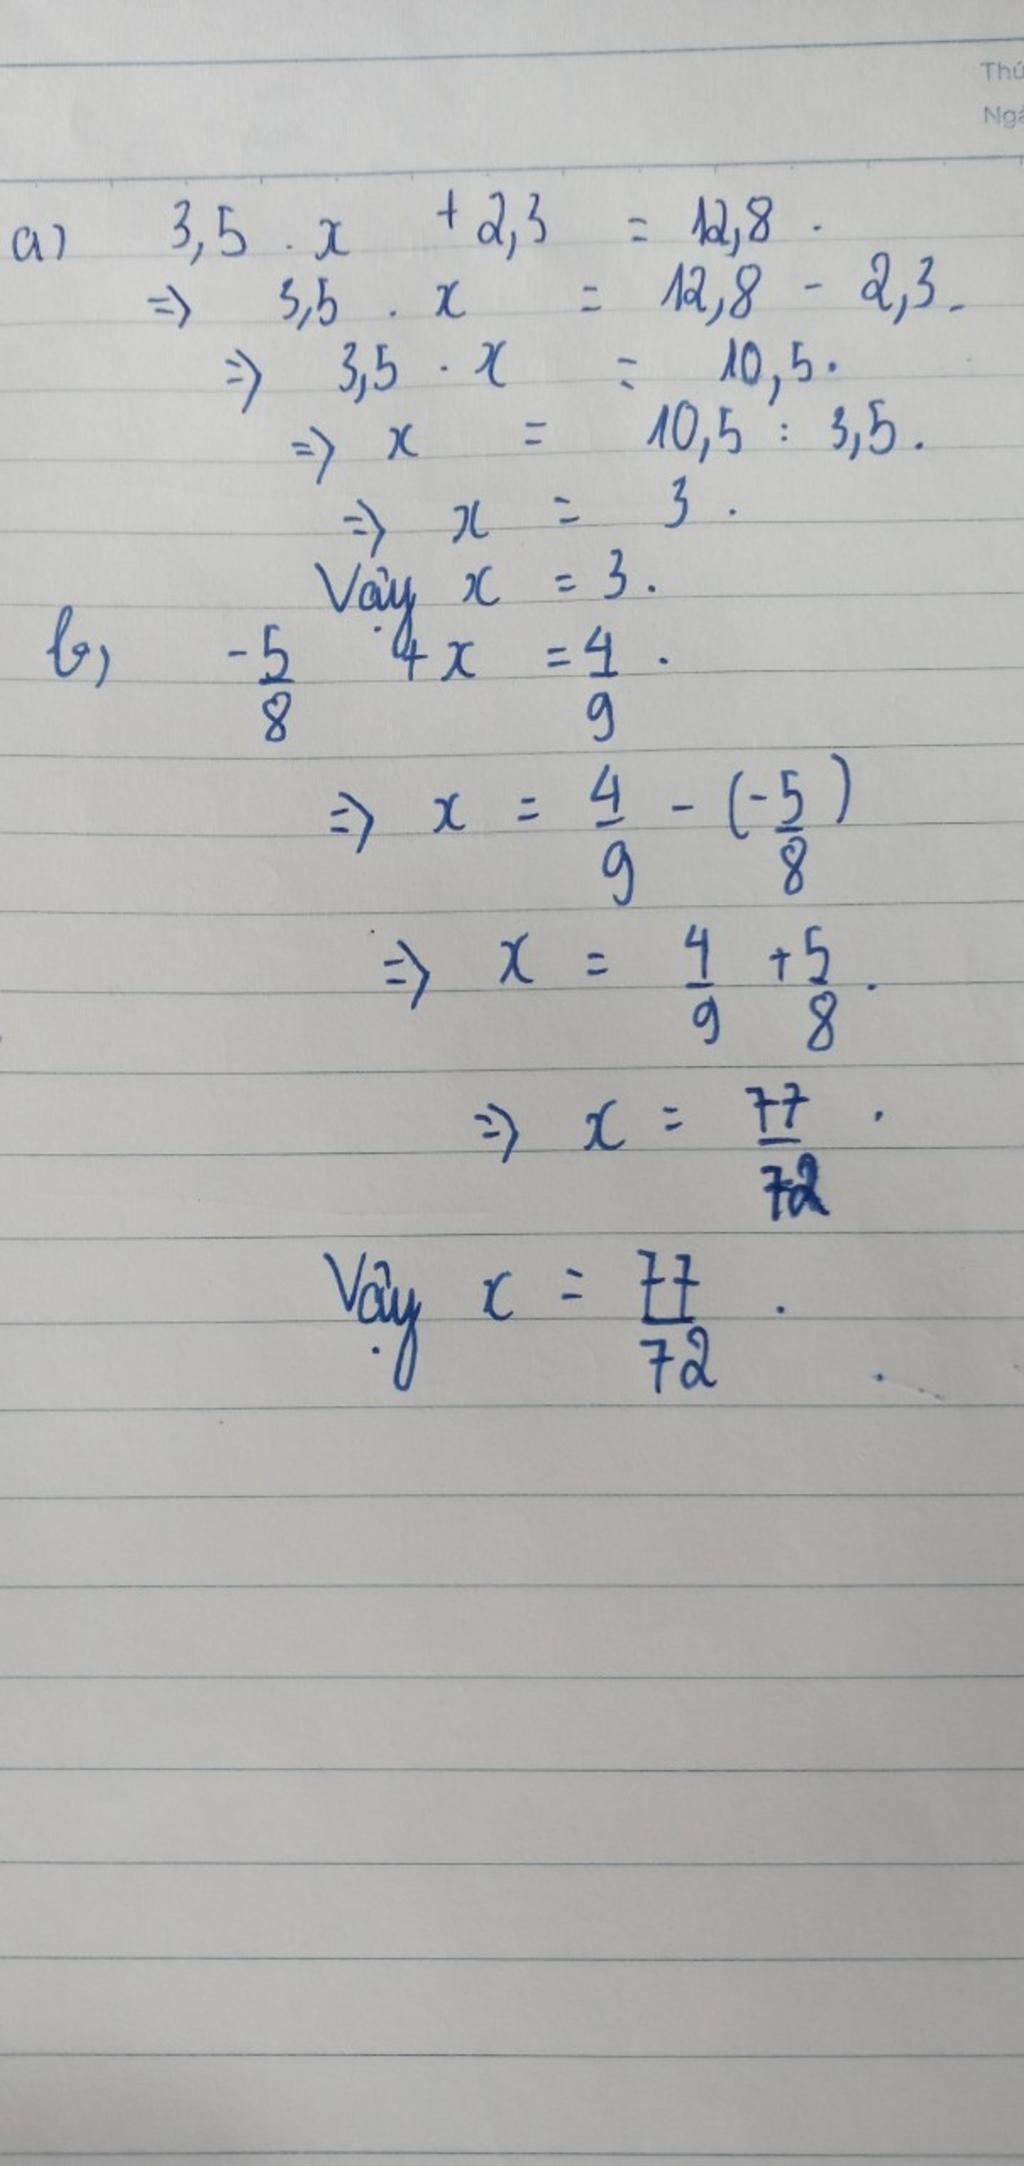 Thứ
Ngà
a) 3,5 . x + 2,3 = 12,8 .
=> 3,5 . x = 12,8 - 2,3 .
=> 3,5 . x = 10,5 .
=> x = 10,5 : 3,5 .
=> x = 3 .
Vậy x = 3 .
b, -5/8 + x = 4/9 .
=> x = 4/9 - (-5/8)
=> x = 4/9 + 5/8 .
=> x = 77/72 .
Vậy x = 77/72 .